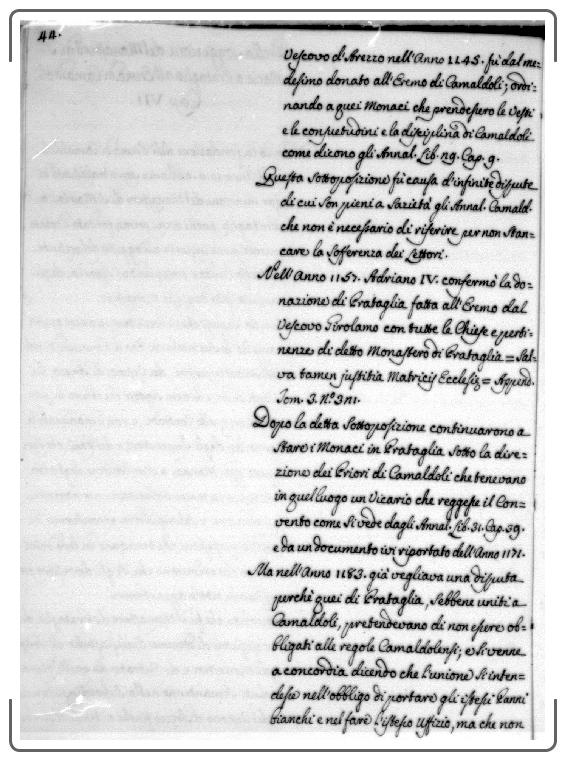 44.
Vescovo d'Arezzo nell'Anno 1145. fù dal me=
desimo donato all'Eremo di Camaldoli; ordi=
nando a quei Monaci che prendessero le Vesti
e le consuetudini e la disciplina di Camaldoli
come dicono gli Annal. Lib. 29. Cap. 9.
Questa Sottoposizione fù causa d'infinite dispute
di cui son pieni a Sazietà gli Annal. Camald.
che non è necessario di riferire per non stan=
care la Sofferenza dei Lettori.
Nell'Anno 1157. Adriano IV. confermò la do=
nazione di Prataglia fatta all'Eremo dal
Vescovo Girolamo con tutte le Chiese e perti=
nenze di detto Monastero di Prataglia = Sal=
va tamen justitia Matricis Ecclesiæ = Append.
Tom. 3. N.º 311.
Dopo la detta Sottoposizione continuarono a
stare i Monaci in Prataglia sotto la dire=
zione dei Priori di Camaldoli che tenevano
in quel luogo un Vicario che reggesse il Con=
vento come si vede dagli Annal. Lib. 31. Cap. 39.
e da un documento ivi riportato dell'Anno 1171.
Ma nell'Anno 1183. già vegliava una disputa
perchè quei di Prataglia, Sebbene uniti a
Camaldoli, pretendevano di non essere ob=
bligati alle regole Camaldolensi; e si venne
a concordia dicendo che l'unione s'inten=
desse nell'obbligo di portare gli istessi Panni
bianchi e nel fare l'istesso Uffizio, ma che non